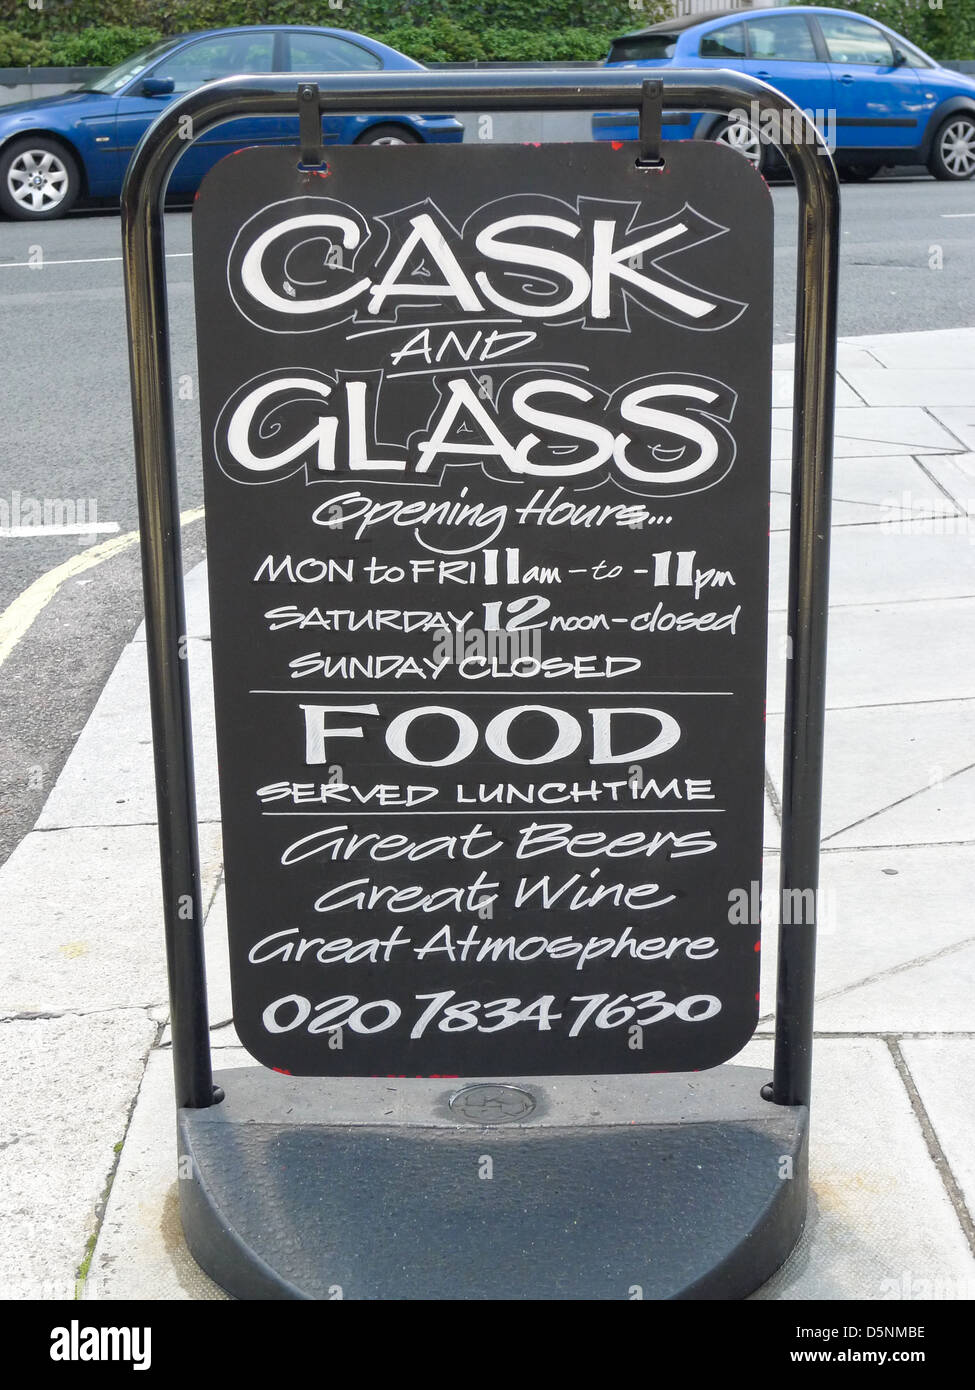 CASK
AND
GLASS
Opening Hours...
MON to FRI 11am - to - 11pm
SATURDAY 12 noon - closed
SUNDAY CLOSED
FOOD
SERVED LUNCHTIME
Great Beers
Great Wine
Great Atmosphere
020 7834 7630
alamy
Image ID: D5NMBE
www.alamy.com